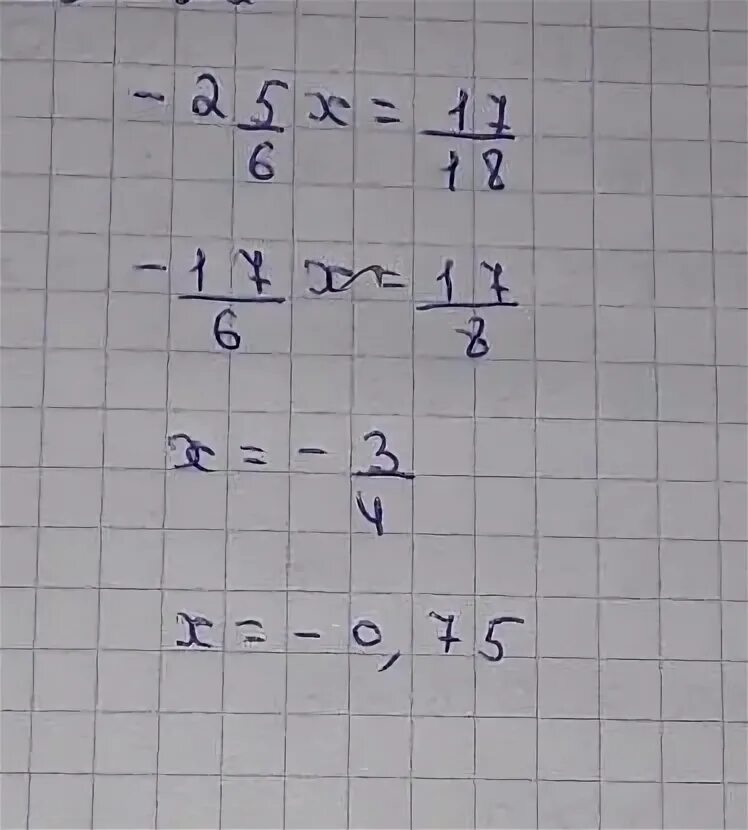 -2 5/6 x = 17/18
-17/6 x = 17/8
x = - 3/4
x = - 0,75